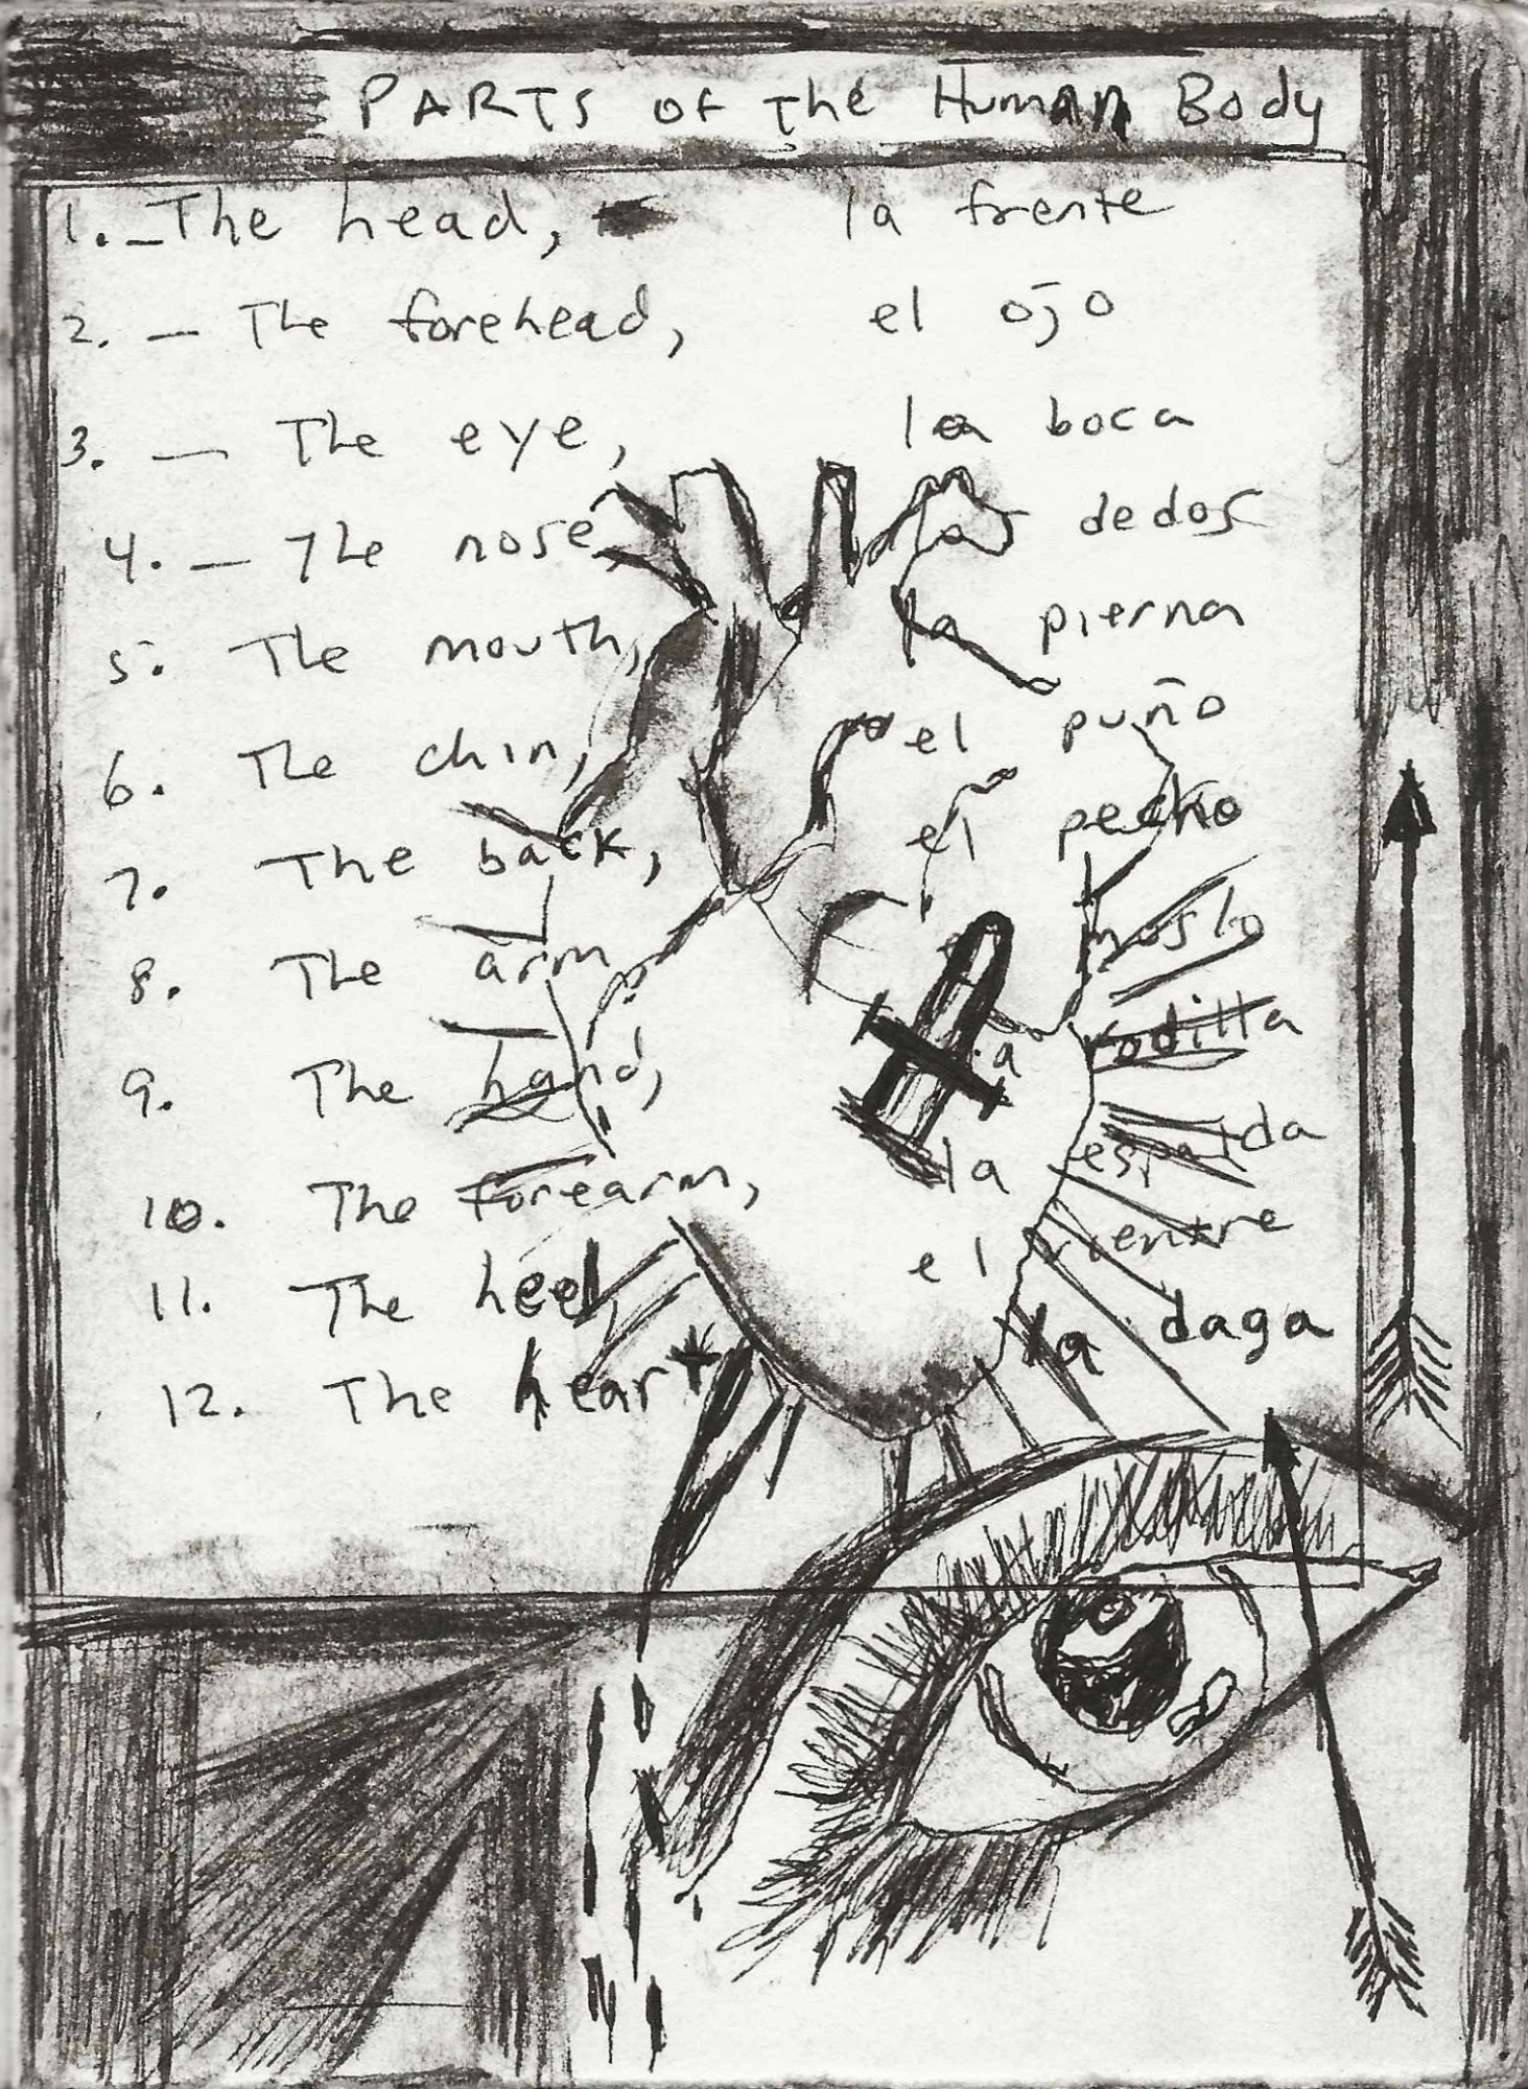 PARTS of The Human Body
1. _ The head, la frente
2. — The forehead, el ojo
3. — The eye, la boca
4. — The nose, los dedos
5. The mouth, la pierna
6. The chin, el puño
7. The back, el pecho
8. The arm muslo
9. The hand, la rodilla
10. The forearm, la espalda
11. The heel, el vientre
12. The heart la daga